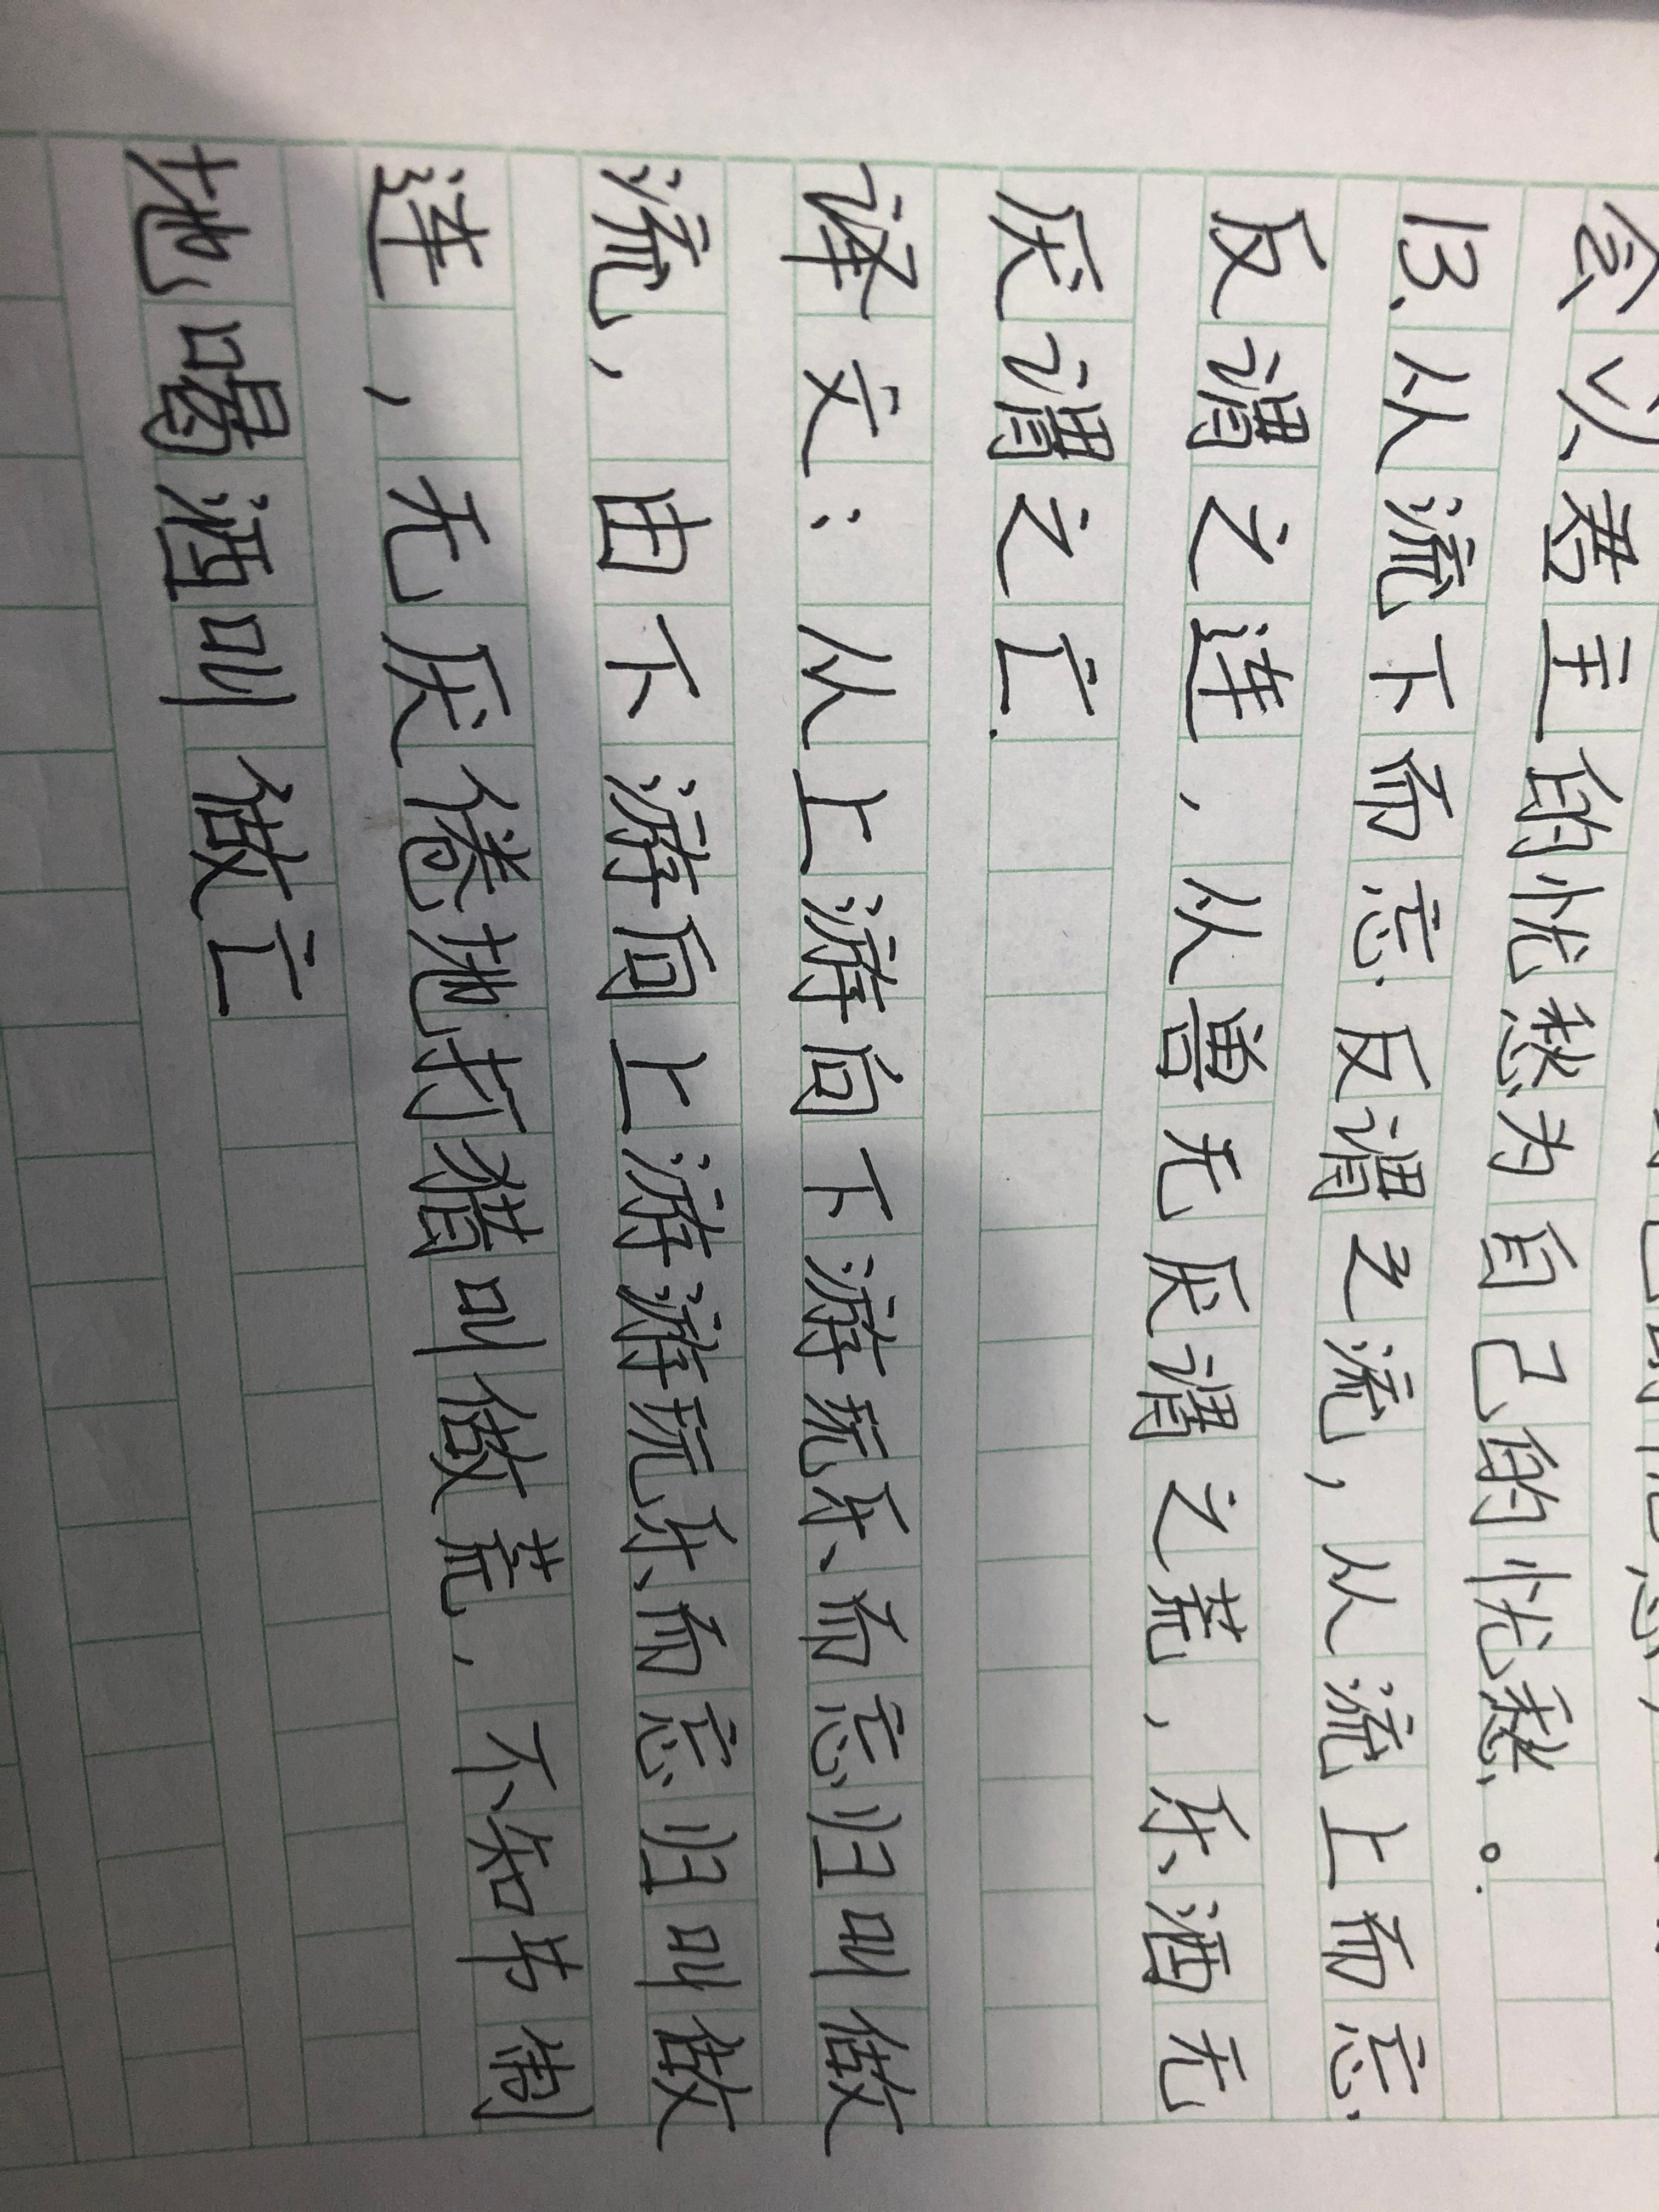 会以君主的忧愁为自己的忧愁。
13、从流下而忘反谓之流，从流上而忘
反谓之连，从兽无厌谓之荒，乐酒无
厌谓之亡.
译文：从上游向下游玩乐而忘归叫做
流，由下游向上游游玩乐而忘归叫做
连，无厌倦地打猎叫做荒，不知节制
地喝酒叫做亡